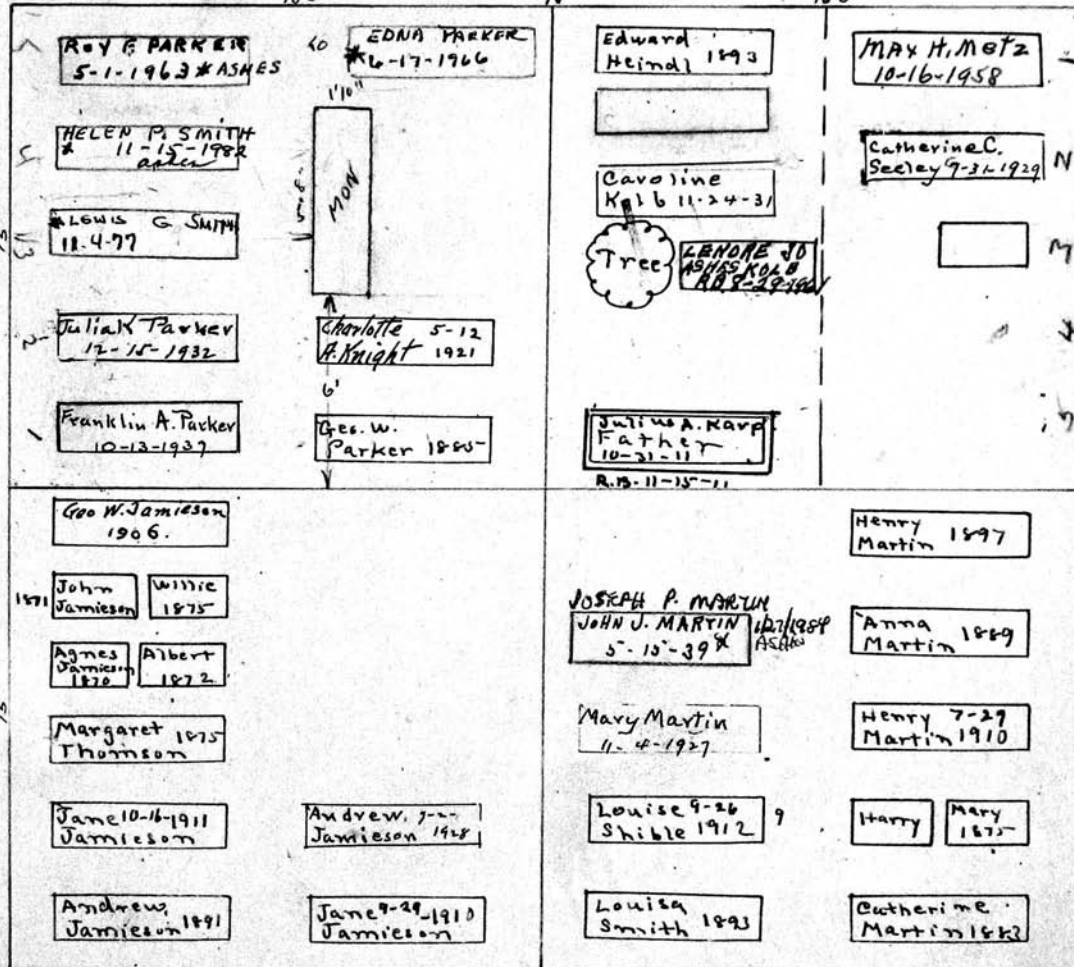 ROY F. PARKER
5-1-1963 * ASHES
EDNA PARKER
* 6-17-1966
HELEN P. SMITH
* 11-15-1982
ashes
1'10"
MON
* LEWIS G SMITH
11-4-77
Julia K Parker
12-15-1932
Charlotte 5-12
A. Knight 1921
6'
Franklin A. Parker
10-13-1937
Geo. W.
Parker 1885
Edward
Heindl 1893
Caroline
Kolb 11-24-31
Tree
LENORE JO
ASHES KOLB
RB 8-29-
Julius A. Karp
Father
10-31-11
R.B. 11-15-11
MAX H. METZ
10-16-1958
1
Catherine C.
Seeley 9-31-1929
2
3
4
5
Geo W. Jamieson
1906.
1871
John
Jamieson
Willie
1875
Agnes
Jamieson
1870
Albert
1872
Margaret 1875
Thomson
Jane 10-16-1911
Jamieson
Andrew.
Jamieson 1928
Andrew
Jamieson 1891
Jane 9-29-1910
Jamieson
JOSEPH P. MARTIN
JOHN J. MARTIN
5-15-39 *
1/27/1984
ASHES
Mary Martin
11-4-1927
Louise 9-26
Shible 1912
9
Louisa
Smith 1893
Henry
Martin 1897
Anna
Martin 1889
Henry 7-29
Martin 1910
Harry
Mary
1875
Catherine
Martin 1883